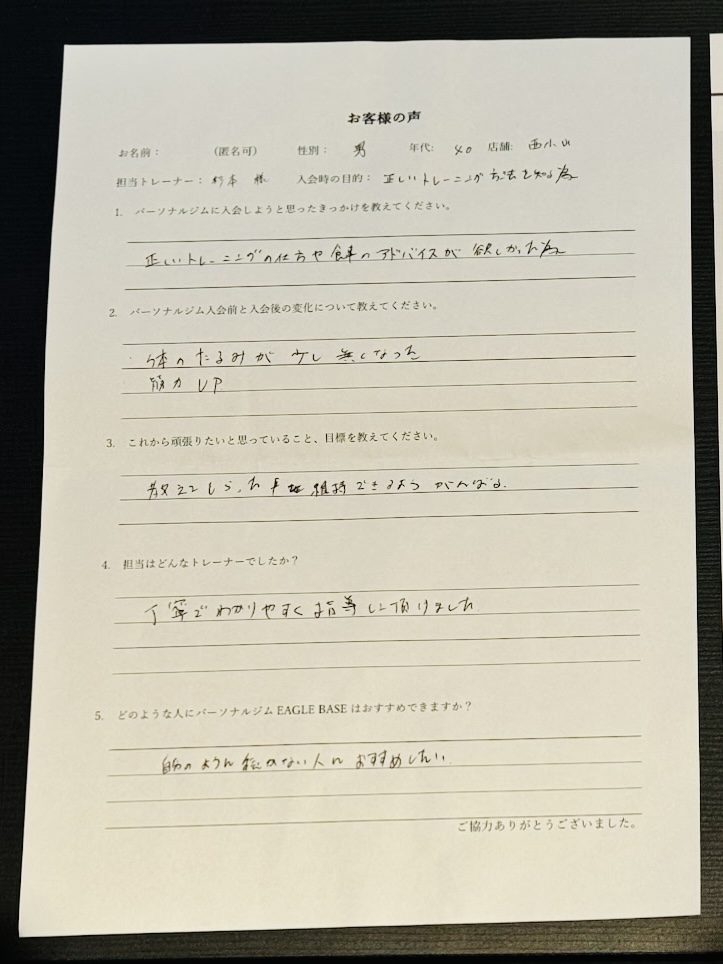 お客様の声
お名前： （匿名可） 性別： 男 年代: 40 店舗: 西小山
担当トレーナー： 杉本 様 入会時の目的： 正しいトレーニング方法を知る為
1. パーソナルジムに入会しようと思ったきっかけを教えてください。
正しいトレーニングの仕方や食事のアドバイスが欲しかった為
2. パーソナルジム入会前と入会後の変化について教えてください。
体のたるみが少し無くなった
筋力UP
3. これから頑張りたいと思っていること、目標を教えてください。
教えてもらった事を維持できるようがんばる.
4. 担当はどんなトレーナーでしたか？
丁寧でわかりやすく指導して頂けました
5. どのような人にパーソナルジム EAGLE BASE はおすすめできますか？
自分のような 人に おすすめしたい.
ご協力ありがとうございました。